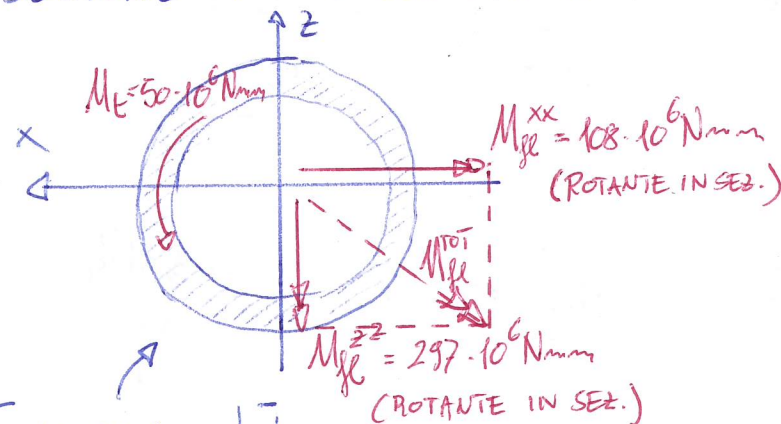 z
Mt=50·10⁶Nmm
x
Mfl^xx = 108·10⁶Nmm
(ROTANTE IN SEZ.)
Mfl^TOT
Mfl^zz = 297·10⁶Nmm
(ROTANTE IN SEZ.)